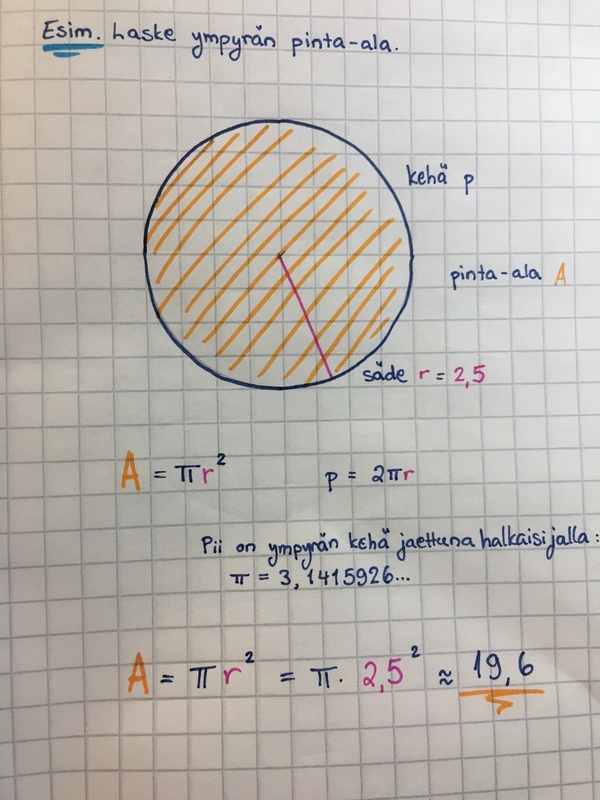 Esim. Laske ympyrän pinta-ala.
kehä p
pinta-ala A
säde r = 2,5
A = πr²
p = 2πr
Pii on ympyrän kehä jaettuna halkaisijalla:
π = 3,1415926...
A = πr² = π· 2,5² ≈ 19,6